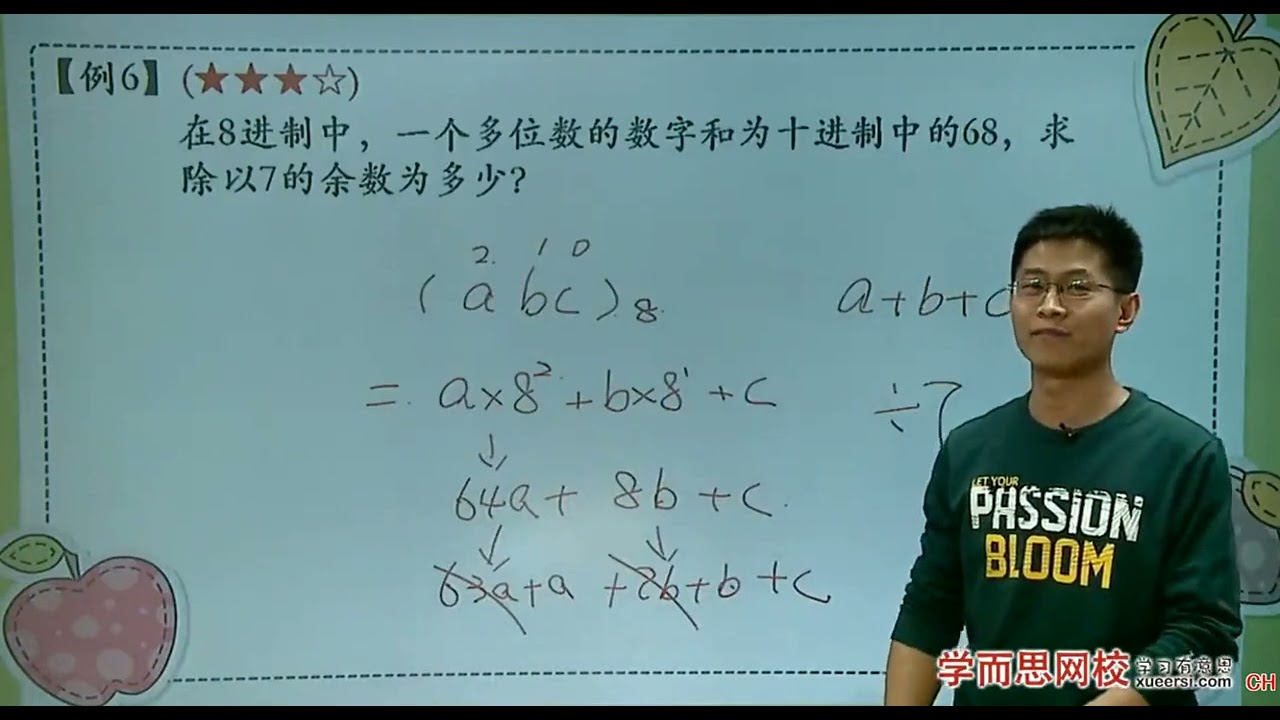 【例6】(★★★☆)
在8进制中，一个多位数的数字和为十进制中的68，求
除以7的余数为多少？
2. 1 0
(abc)8 a+b+c
= a×8²+b×8¹+c ÷7
64a+ 8b+c.
63a+a +7b+b+c
LET YOUR
PASSION
BLOOM
学而思网校 学习有意思
xueersi.com
CH